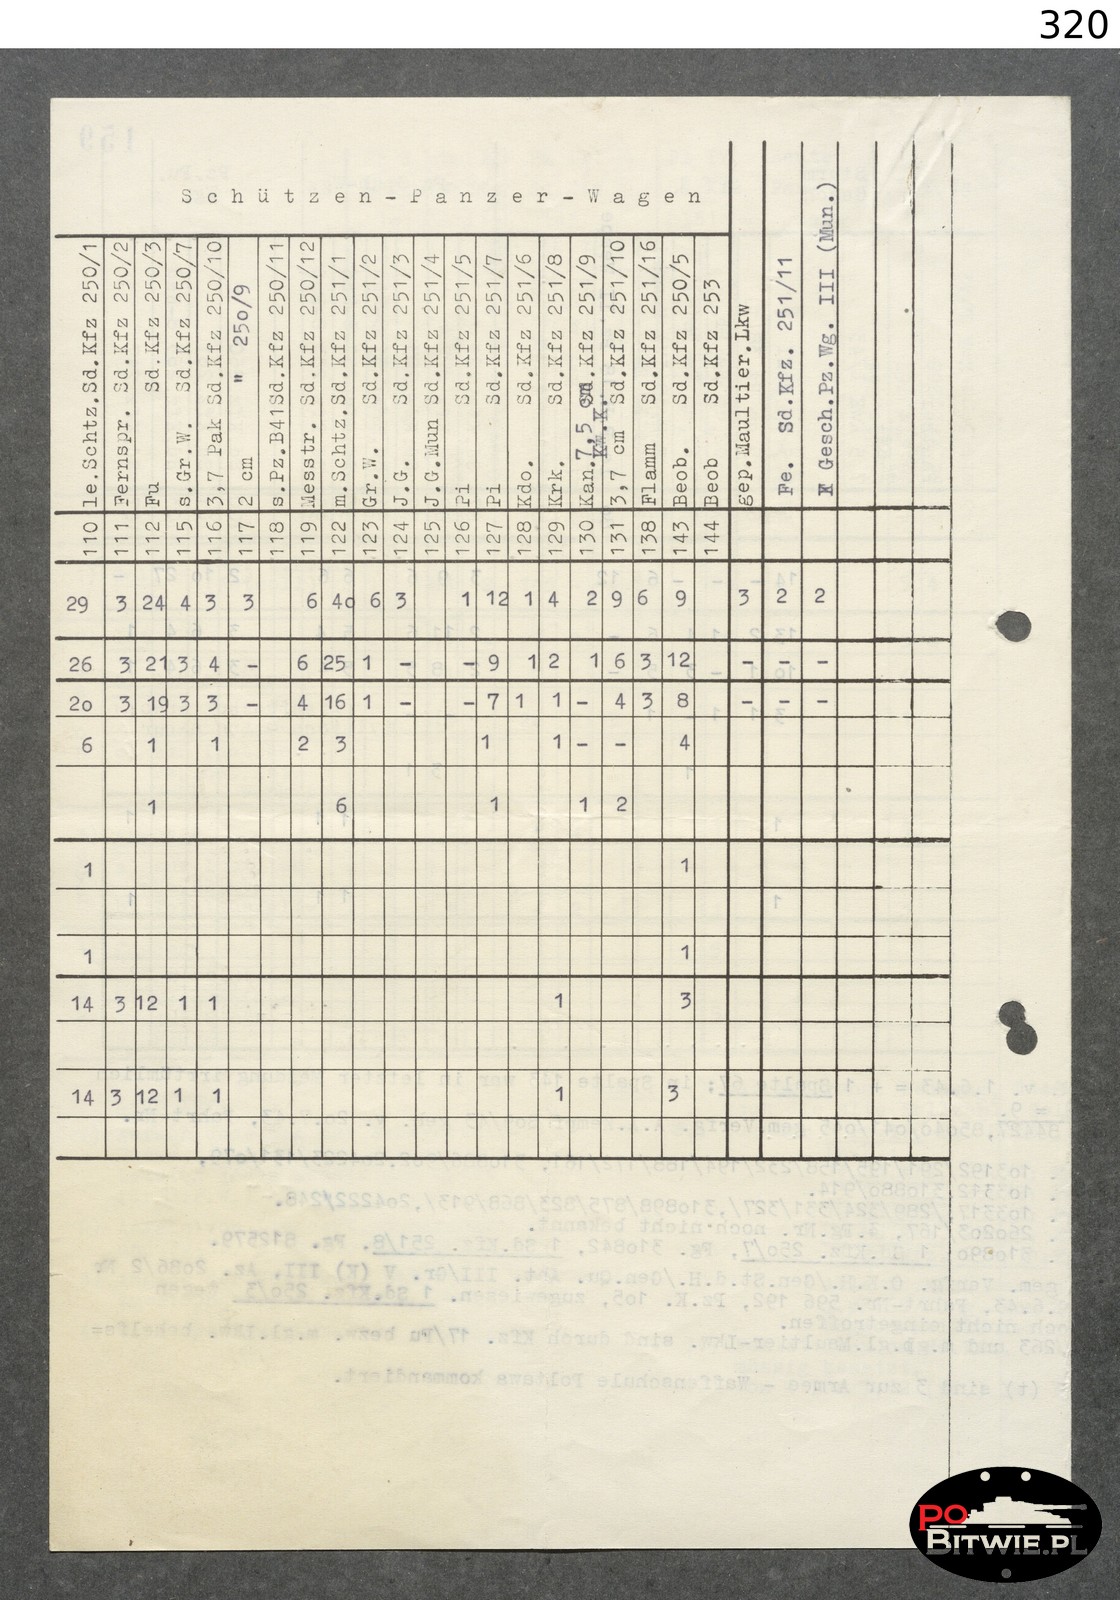 320
Schützen-Panzer-Wagen
110 le.Schtz.Sd.Kfz 250/1
111 Fernspr. Sd.Kfz 250/2
112 Fu Sd.Kfz 250/3
115 s.Gr.W. Sd.Kfz 250/7
116 3,7 Pak Sd.Kfz 250/10
117 2 cm " 25o/9
118 s.Pz.B41Sd.Kfz 250/11
119 Messtr. Sd.Kfz 250/12
122 m.Schtz.Sd.Kfz 251/1
123 Gr.W. Sd.Kfz 251/2
124 J.G. Sd.Kfz 251/3
125 J.G.Mun Sd.Kfz 251/4
126 Pi Sd.Kfz 251/5
127 Pi Sd.Kfz 251/7
128 Kdo. Sd.Kfz 251/6
129 Krk. Sd.Kfz 251/8
130 Kan.7,5 cm Sd.Kfz 251/9
Kw.K.
131 3,7 cm Sd.Kfz 251/10
138 Flamm Sd.Kfz 251/16
143 Beob. Sd.Kfz 250/5
144 Beob Sd.Kfz 253
gep.Maultier.Lkw
Fe. Sd.Kfz. 251/11
Gesch.Pz.Wg. III (Mun.)
29 3 24 4 3 3 6 4o 6 3 1 12 1 4 2 9 6 9 3 2 2
26 3 21 3 4 - 6 25 1 - - 9 1 2 1 6 3 12 - - -
2o 3 19 3 3 - 4 16 1 - - 7 1 1 - 4 3 8 - - -
6 1 1 2 3 1 1 - - 4
1 6 1 1 2
1 1
1 1
14 3 12 1 1 1 3
14 3 12 1 1 1 3
PO
BITWIE.PL